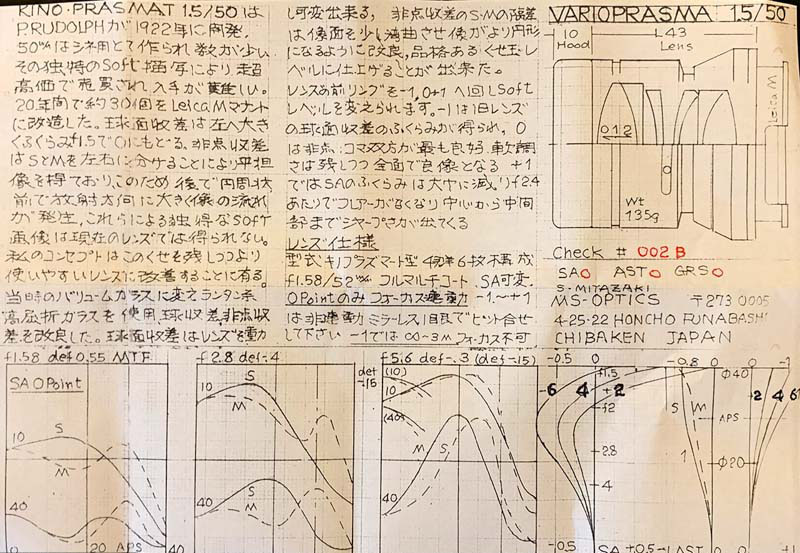 KINO・PRASMAT 1.5/50は
P.RUDOLPHが1922年に開発、
50㎜はシネ用として作られ数が少い
その独特のSoft描写により超
高価で売買され入手が難しい。
20年間で約30個をLeicaMマウント
に改造した。球面収差は左へ大きく
ふくらみf1.5で0にもどる。非点収差
はSとMを左右に分けることにより平坦
像を得ており、このため後で円周状
前で放射方向に大きく像の流れ
が発生、これらによる独得なSoft
画像は現在のレンズでは得られない。
私のコンセプトはこのくせを残しつつより
使いやすいレンズに改善することに有る。
当時のバリュームガラスに変えランタン系
高屈折ガラスを使用、球収差、非点収
差を改良した。球面収差はレンズ移動
し可変出来る。非点収差のS・Mの隔差
は像面を少し湾曲させ像がより円形
になるように改良、品格あるくせ玉レ
ベルに仕上げることが出来た。
レンズの前リングを-1,0+1へ回しSoft
レベルを変えられます。-1は旧レンズ
の球面収差のふくらみが得られ。0
は非点、コマ双方が最も良好、軟調
さは残しつつ全面で良像となる +1
ではSAのふくらみは大巾に減りf2.4
あたりでフレアーがなくなり中心から中間
部までシャープさが出てくる
レンズ仕様
型式 キノプラズマート型 4群6枚 構成
f1.58/52㎜ フルマルチコート、SA可変、
0Pointのみフォーカス連動 -1.〜+1
は非連動 ミラーレス、目見でピント合せ
して下さい -1では∞-3m フォーカス不可
VARIOPRASMA 1.5/50
10
Hood
L43
Lens
Leica M
0 1 2
Wt
135g
Check # 002B
SAO ASTO GRSO
S-MIYAZAKI
MS-OPTICS 〒273 0005
4-25-22 HONCHO FUNABASHI
CHIBAKEN JAPAN
f1.58 def0.55 MTF
SA 0Point
10
S
M
40
20 APS
f2.8 def-.4
S
10
M
S
M
40
f5.6 def-.3 (def-.15)
def
-.15
(10)
10
(40)
M
S
40
-0.5 0
f1.5
-6 4 +2
f2
-2.8
4
-0.5
SA
-0.8 0
S M
APS
1
+0.5
LAST
0 -1
Φ40
2 4 6
Φ20
0 +1